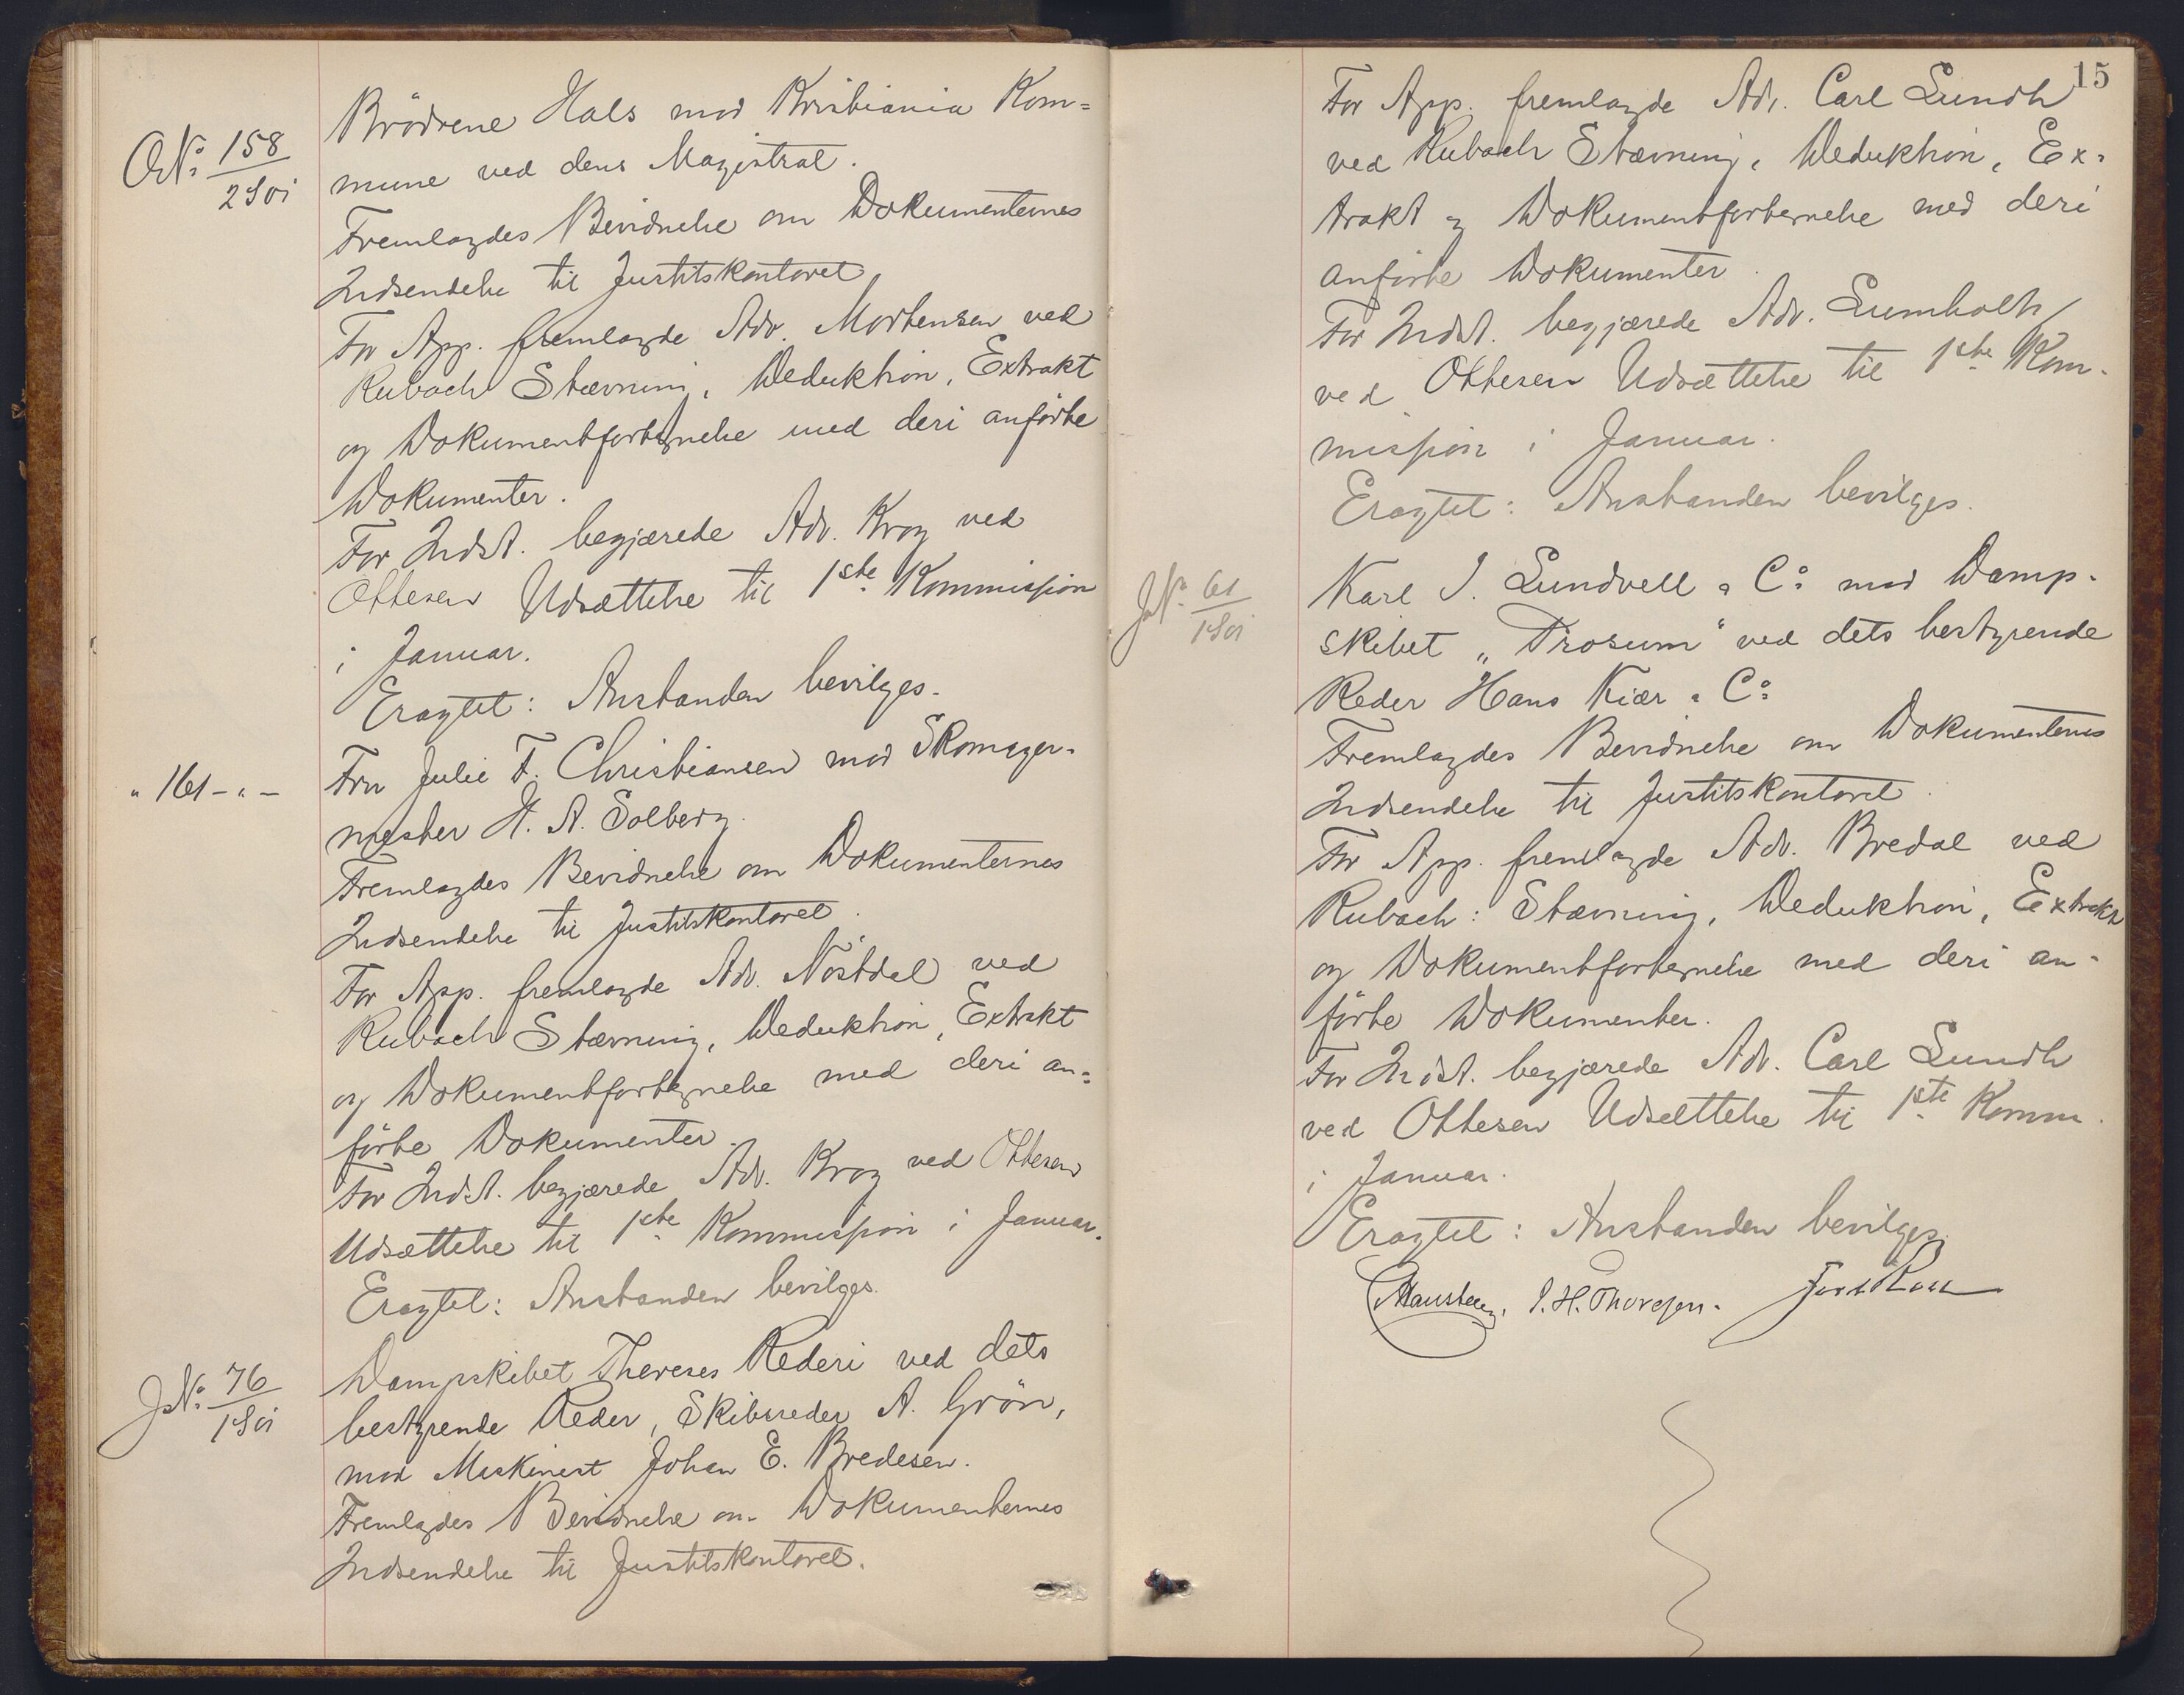 ONo 158
2 S 01
Brødrene Hals mod Kristiania Kom=
mune ved dens Magistrat.
Fremlagdes Bevidnelse om Dokumenternes
Indsendelse til Justitskontoret
For App. fremlagde Adv. Mortensen ved
Rubach Stævning, Deduktion, Extrakt
og Dokumentfortegnelse med deri anførte
Dokumenter.
For Indst. begjærede Adv. Krog ved
Ottesen Udsættelse til 1ste Kommission
i Januar.
Eragtet: Anstanden bevilges.
" 161 - " -
Fru Julie F. Christiansen mod Skomager-
mester H. A. Solberg.
Fremlagdes Bevidnelse om Dokumenternes
Indsendelse til Justitskontoret.
For App. fremlagde Adv. Nöstdal ved
Rubach Stævning, Deduktion, Extrakt
og Dokumentfortegnelse med deri an=
førte Dokumenter.
For Indst. begjærede Adv. Krog ved Ottesen
Udsættelse til 1ste Kommission i Januar.
Eragtet: Anstanden bevilges.
JNo 76
1 S 01
Dampskibet Thereses Rederi ved dets
bestyrende Reder, Skibsreder A. Grøn,
mod Maskinist Johan E. Bredesen.
Fremlagdes Bevidnelse om Dokumenternes
Indsendelse til Justitskontoret.
15
For App. fremlagde Adv. Carl Lundh
ved Rubach Stævning, Deduktion, Ex-
trakt og Dokumentfortegnelse med deri
anførte Dokumenter.
For Indst. begjærede Adv. Lumholtz
ved Ottesen Udsættelse til 1ste Kom-
mission i Januar.
Eragtet: Anstanden bevilges.
JNo 61
1 S 01
Karl J. Lundvell & Co mod Damp-
skibet „Trosum“ ved dets bestyrende
Reder Hans Kiær & Co
Fremlagdes Bevidnelse om Dokumenternes
Indsendelse til Justitskontoret.
For App. fremlagde Adv. Bredal ved
Rubach: Stævning, Deduktion, Extrakt
og Dokumentfortegnelse med deri an-
førte Dokumenter.
For Indst. begjærede Adv. Carl Lundh
ved Ottesen Udsættelse til 1ste Komm.
i Januar.
Eragtet: Anstanden bevilges.
J. H. Thoresen.